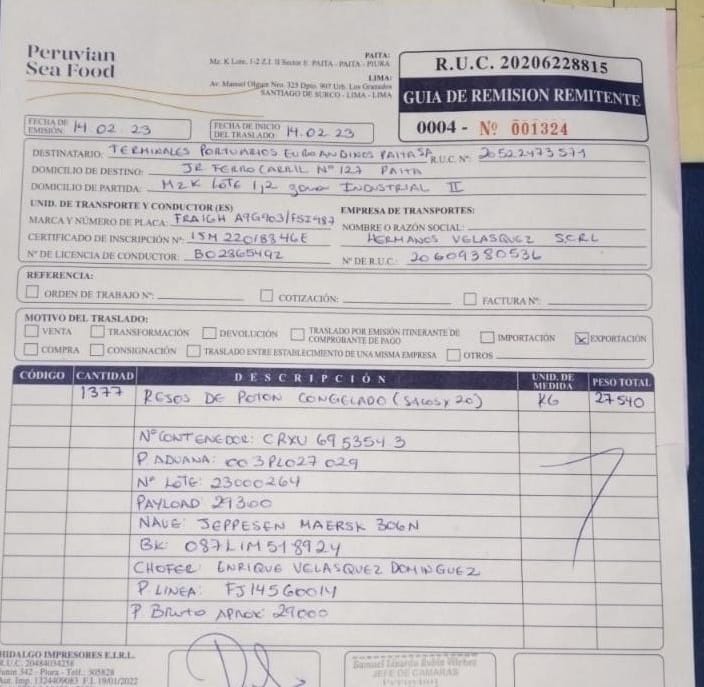 Peruvian
Sea Food
PAITA:
Mz. K Lote. 1-2 Z.I. II Sector E PAITA - PAITA - PIURA
LIMA:
Av. Manuel Olguin Nro. 325 Dpto. 907 Urb. Los Granados
SANTIAGO DE SURCO - LIMA - LIMA
R.U.C. 20206228815
GUIA DE REMISION REMITENTE
0004 - Nº 001324
FECHA DE EMISIÓN: 14.02.23
FECHA DE INICIO DEL TRASLADO: 14.02.23
DESTINATARIO: TERMINALES PORTUARIOS EUROANDINOS PAITA SA R.U.C. Nº: 20522473571
DOMICILIO DE DESTINO: JR FERROCARRIL Nº 127 PAITA
DOMICILIO DE PARTIDA: MZK LOTE 1,2 zona INDUSTRIAL II
UNID. DE TRANSPORTE Y CONDUCTOR (ES)
EMPRESA DE TRANSPORTES:
MARCA Y NÚMERO DE PLACA:
NOMBRE O RAZÓN SOCIAL:
CERTIFICADO DE INSCRIPCIÓN Nº: 15M22018346E
HERMANOS VELASQUEZ S.C.R.L
Nº DE LICENCIA DE CONDUCTOR: B02865492
Nº DE R.U.C.: 20609380536
REFERENCIA:
ORDEN DE TRABAJO Nº:
COTIZACIÓN:
FACTURA Nº:
MOTIVO DEL TRASLADO:
VENTA
TRANSFORMACIÓN
DEVOLUCIÓN
TRASLADO POR EMISIÓN ITINERANTE DE COMPROBANTE DE PAGO
IMPORTACIÓN
X EXPORTACIÓN
COMPRA
CONSIGNACIÓN
TRASLADO ENTRE ESTABLECIMIENTO DE UNA MISMA EMPRESA
OTROS
CÓDIGO CANTIDAD DESCRIPCIÓN UNID. DE MEDIDA PESO TOTAL
1377 RESOS DE POTON CONGELADO (SACOS X 20) KG 27540
Nº CONTENEDOR: CRXU 695354 3
P. ADUANA: 003PL027029
Nº LOTE: 23000264
PAYLOAD 29300
NAVE: JEPPESEN MAERSK 306N
BK: 087LIM518924
CHOFER: ENRIQUE VELASQUEZ DOMINGUEZ
P. LINEA: FJ14560014
P. BRUTO APROX: 29000
HIDALGO IMPRESORES E.I.R.L.
R.U.C. 20484034258
Junin 342 - Piura - Telf.: 305828
Aut. Imp. 1324409083 F.I. 19/01/2022
JEFE DE CAMARAS